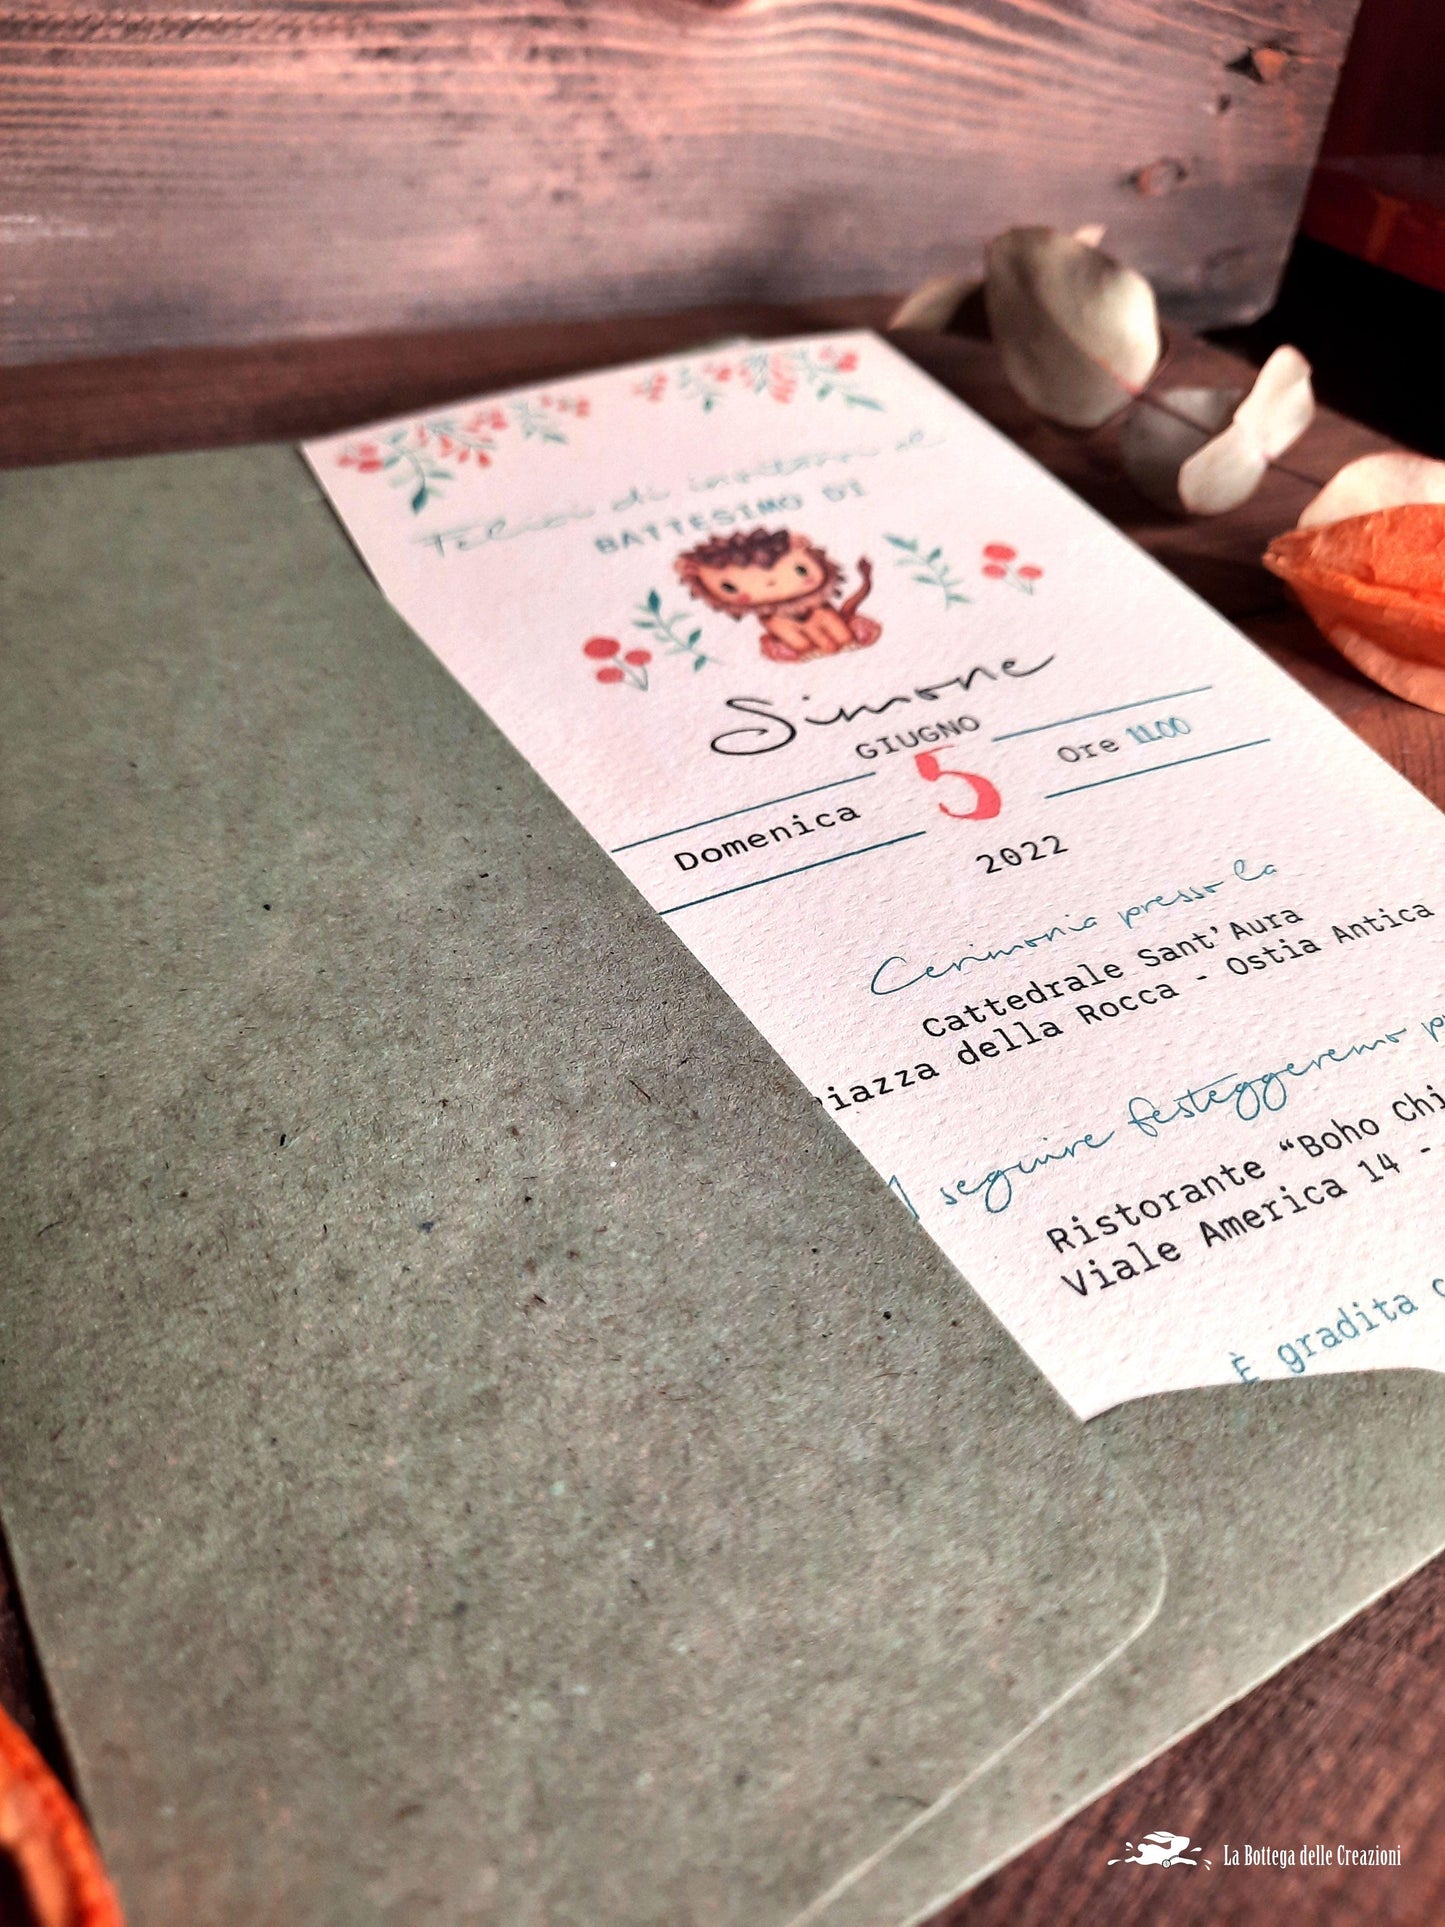 Felici di invitarvi al
BATTESIMO DI
Simone
GIUGNO
Domenica 5 Ore 11.00
2022
Cerimonia presso la
Cattedrale Sant'Aura
Piazza della Rocca - Ostia Antica
A seguire festeggeremo
Ristorante "Boho Chi
Viale America 14 -
È gradita
La Bottega delle Creazioni